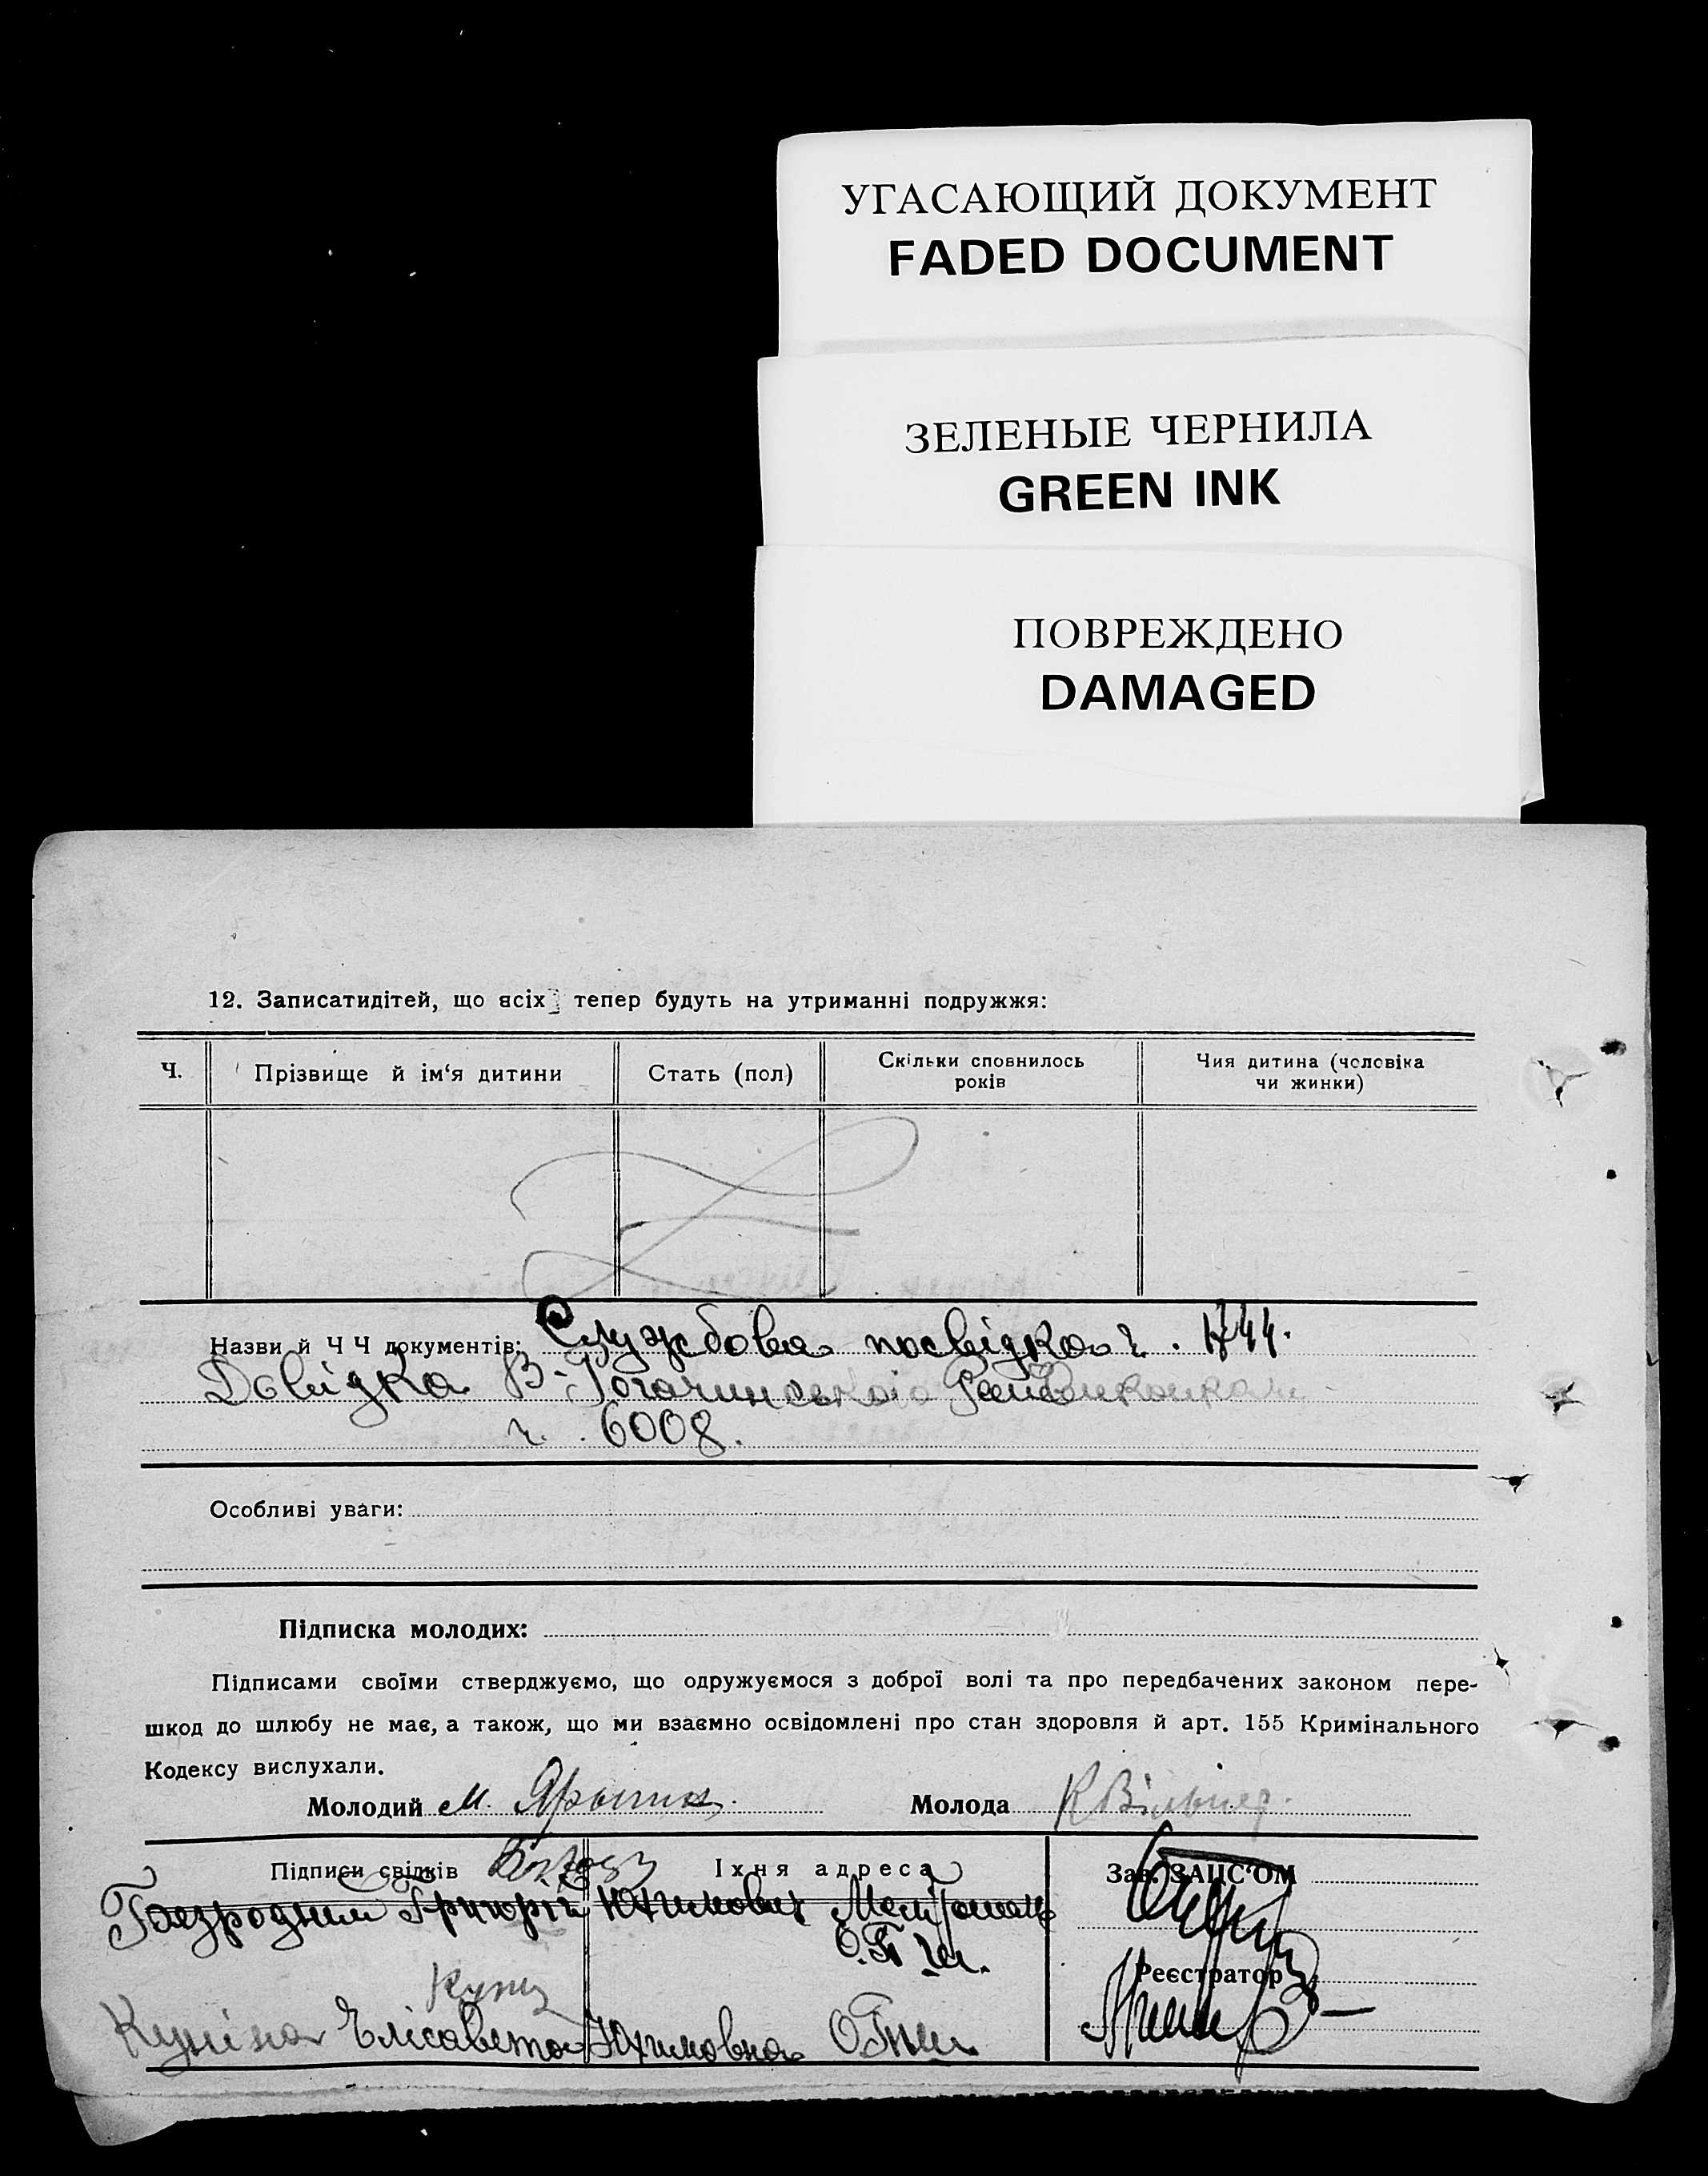 УГАСАЮЩИЙ ДОКУМЕНТ
FADED DOCUMENT
ЗЕЛЕНЫЕ ЧЕРНИЛА
GREEN INK
ПОВРЕЖДЕНО
DAMAGED
12. Записатидітей, що всіх тепер будуть на утриманні подружжя:
Ч. Прізвище й ім'я дитини Стать (пол) Скільки сповнилось років Чия дитина (чоловіка чи жинки)
Назви й Ч Ч документів: Службова посвідка ч.
Довідка В-Рогачинського
ч. 6008.
Особливі уваги:
Підписка молодих:
Підписами своїми стверджуємо, що одружуємося з доброї волі та про передбачених законом пере-
шкод до шлюбу не має, а також, що ми взаємно освідомлені про стан здоровля й арт. 155 Кримінального
Кодексу вислухали.
Молодий М. Молода
Підписи свідків Їхня адреса Зав. ЗАЦС'ОМ
Григорій Юхимович
Реєстратор
Елісавета Юхимовна